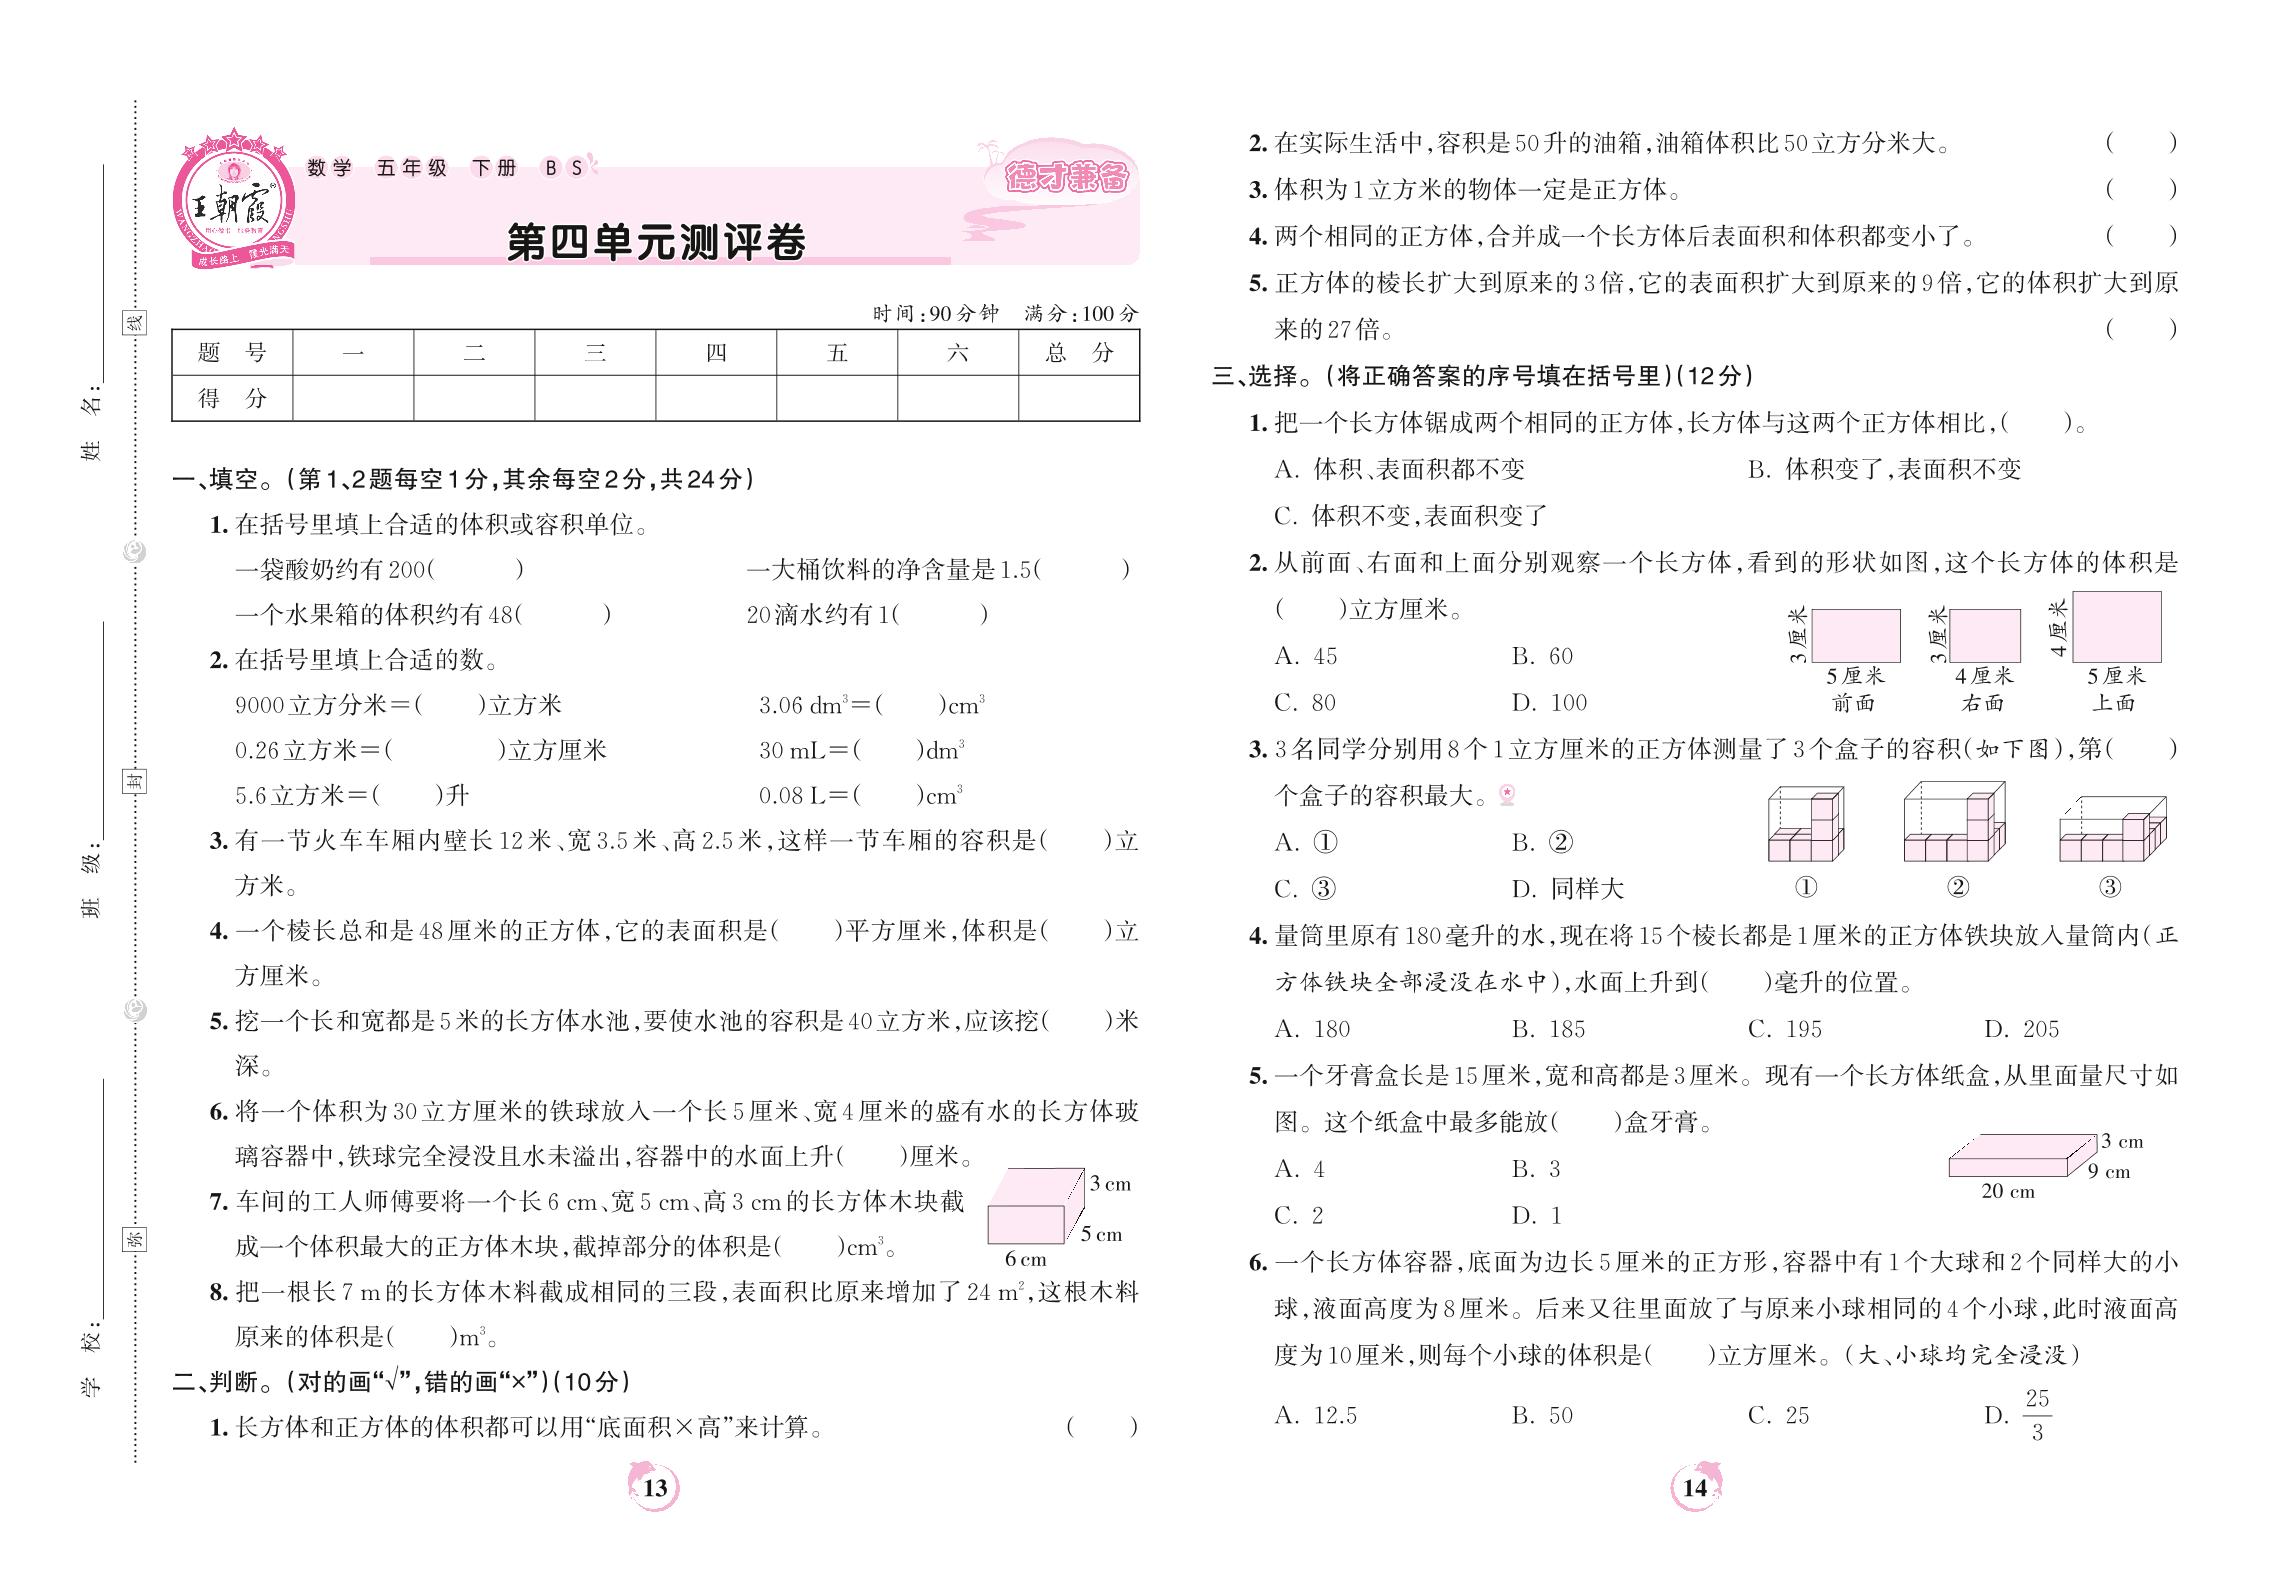 姓 名:
班 级:
学 校:
线
封
弥
王朝霞
成长路上 霞光满天
数学 五年级 下册 BS
德才兼备
第四单元测评卷
时间:90分钟 满分:100分
题 号 一 二 三 四 五 六 总 分
得 分
一、填空。(第1、2题每空1分,其余每空2分,共24分)
1. 在括号里填上合适的体积或容积单位。
一袋酸奶约有200( ) 一大桶饮料的净含量是1.5( )
一个水果箱的体积约有48( ) 20滴水约有1( )
2. 在括号里填上合适的数。
9000立方分米=( )立方米 3.06 dm³=( )cm³
0.26立方米=( )立方厘米 30 mL=( )dm³
5.6立方米=( )升 0.08 L=( )cm³
3. 有一节火车车厢内壁长12米、宽3.5米、高2.5米,这样一节车厢的容积是( )立
方米。
4. 一个棱长总和是48厘米的正方体,它的表面积是( )平方厘米,体积是( )立
方厘米。
5. 挖一个长和宽都是5米的长方体水池,要使水池的容积是40立方米,应该挖( )米
深。
6. 将一个体积为30立方厘米的铁球放入一个长5厘米、宽4厘米的盛有水的长方体玻
璃容器中,铁球完全浸没且水未溢出,容器中的水面上升( )厘米。
7. 车间的工人师傅要将一个长6 cm、宽5 cm、高3 cm的长方体木块截
成一个体积最大的正方体木块,截掉部分的体积是( )cm³。
3 cm
5 cm
6 cm
8. 把一根长7 m的长方体木料截成相同的三段,表面积比原来增加了24 m²,这根木料
原来的体积是( )m³。
二、判断。(对的画“√”,错的画“×”)(10分)
1. 长方体和正方体的体积都可以用“底面积×高”来计算。 ( )
13
2. 在实际生活中,容积是50升的油箱,油箱体积比50立方分米大。 ( )
3. 体积为1立方米的物体一定是正方体。 ( )
4. 两个相同的正方体,合并成一个长方体后表面积和体积都变小了。 ( )
5. 正方体的棱长扩大到原来的3倍,它的表面积扩大到原来的9倍,它的体积扩大到原
来的27倍。 ( )
三、选择。(将正确答案的序号填在括号里)(12分)
1. 把一个长方体锯成两个相同的正方体,长方体与这两个正方体相比,( )。
A. 体积、表面积都不变 B. 体积变了,表面积不变
C. 体积不变,表面积变了
2. 从前面、右面和上面分别观察一个长方体,看到的形状如图,这个长方体的体积是
( )立方厘米。
A. 45 B. 60
C. 80 D. 100
3厘米 3厘米 4厘米
5厘米 4厘米 5厘米
前面 右面 上面
3. 3名同学分别用8个1立方厘米的正方体测量了3个盒子的容积(如下图),第( )
个盒子的容积最大。
A. ① B. ②
C. ③ D. 同样大
① ② ③
4. 量筒里原有180毫升的水,现在将15个棱长都是1厘米的正方体铁块放入量筒内(正
方体铁块全部浸没在水中),水面上升到( )毫升的位置。
A. 180 B. 185 C. 195 D. 205
5. 一个牙膏盒长是15厘米,宽和高都是3厘米。现有一个长方体纸盒,从里面量尺寸如
图。这个纸盒中最多能放( )盒牙膏。
A. 4 B. 3
C. 2 D. 1
3 cm
9 cm
20 cm
6. 一个长方体容器,底面为边长5厘米的正方形,容器中有1个大球和2个同样大的小
球,液面高度为8厘米。后来又往里面放了与原来小球相同的4个小球,此时液面高
度为10厘米,则每个小球的体积是( )立方厘米。(大、小球均完全浸没)
A. 12.5 B. 50 C. 25 D. 25/3
14